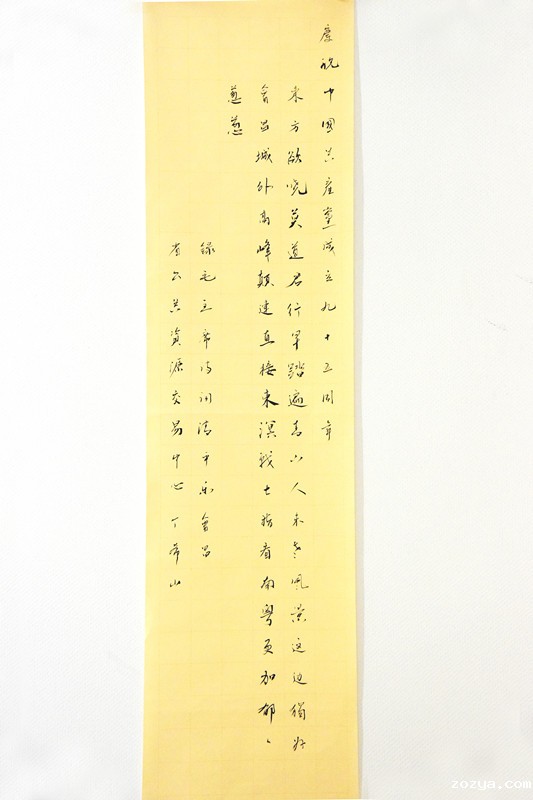 慶祝中國共產黨成立九十五周年
東方欲曉莫道君行早踏遍青山人未老風景這邊獨好
會昌城外高峰顛連直接東溟戰士指看南粵更加郁々
蔥蔥
錄毛主席詩詞清平樂會昌
省公共資源交易中心丁山
zozya.com